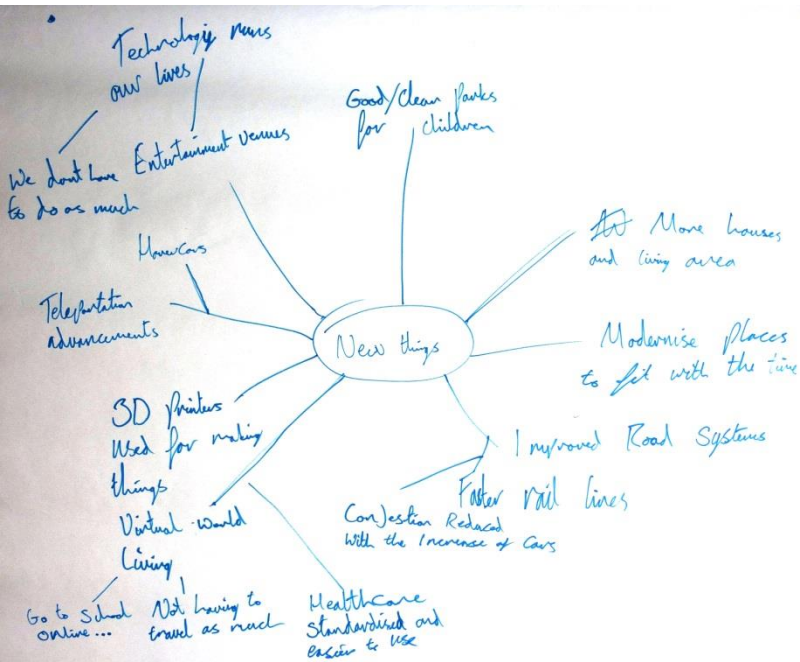 Technology runs
our lives
We dont have
to do as much
Entertainment venues
Good/Clean Parks
for children
More houses
and living area
Hovercars
Teleportation
advancements
New things
Modernise Places
to fit with the time
3D Printers
used for making
things
Improved Road Systems
Faster rail lines
Conjestion Reduced
with the Increase of Cars
Virtual world
Living
Go to School
online...
Not having to
travel as much
Healthcare
Standardised and
easier to use